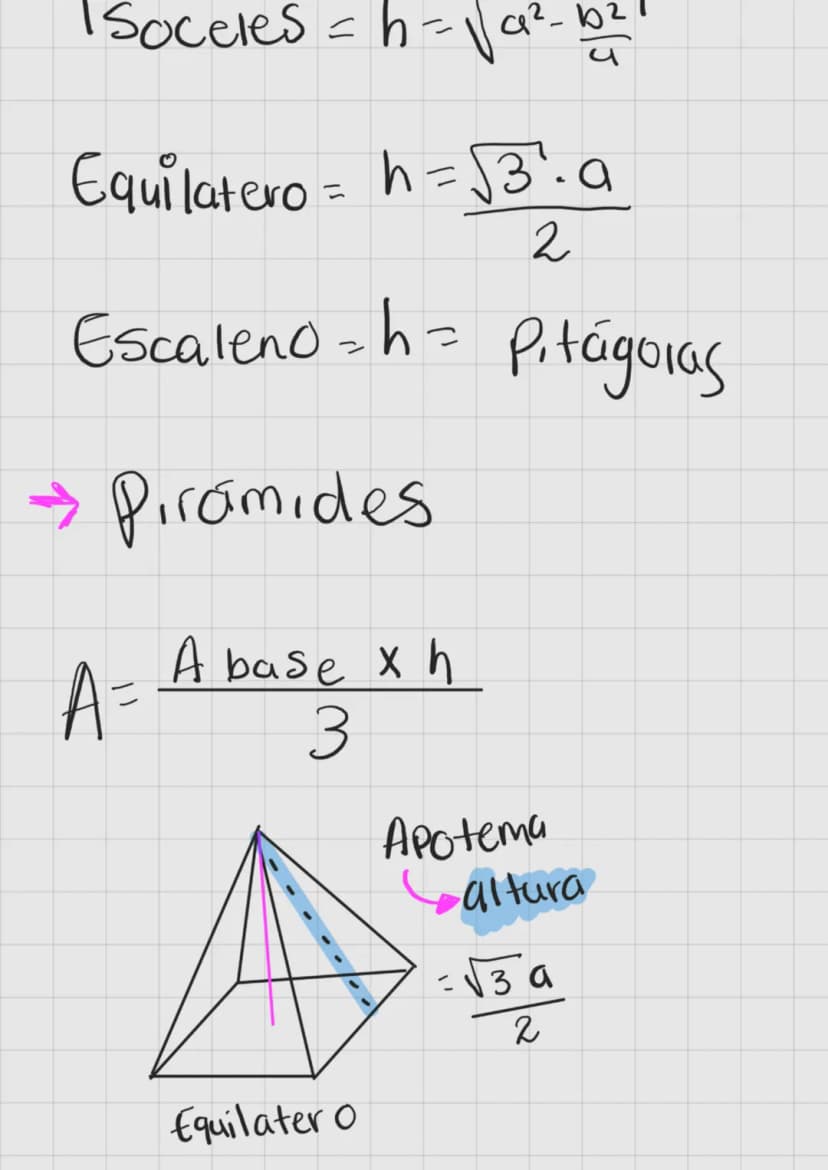 Isoceles = h = √a² - b²/4
Equilatero = h = √3 · a / 2
Escaleno = h = Pitágoras
→ Pirámides
A = A base x h / 3
Apotema
altura
= √3 a / 2
Equilatero